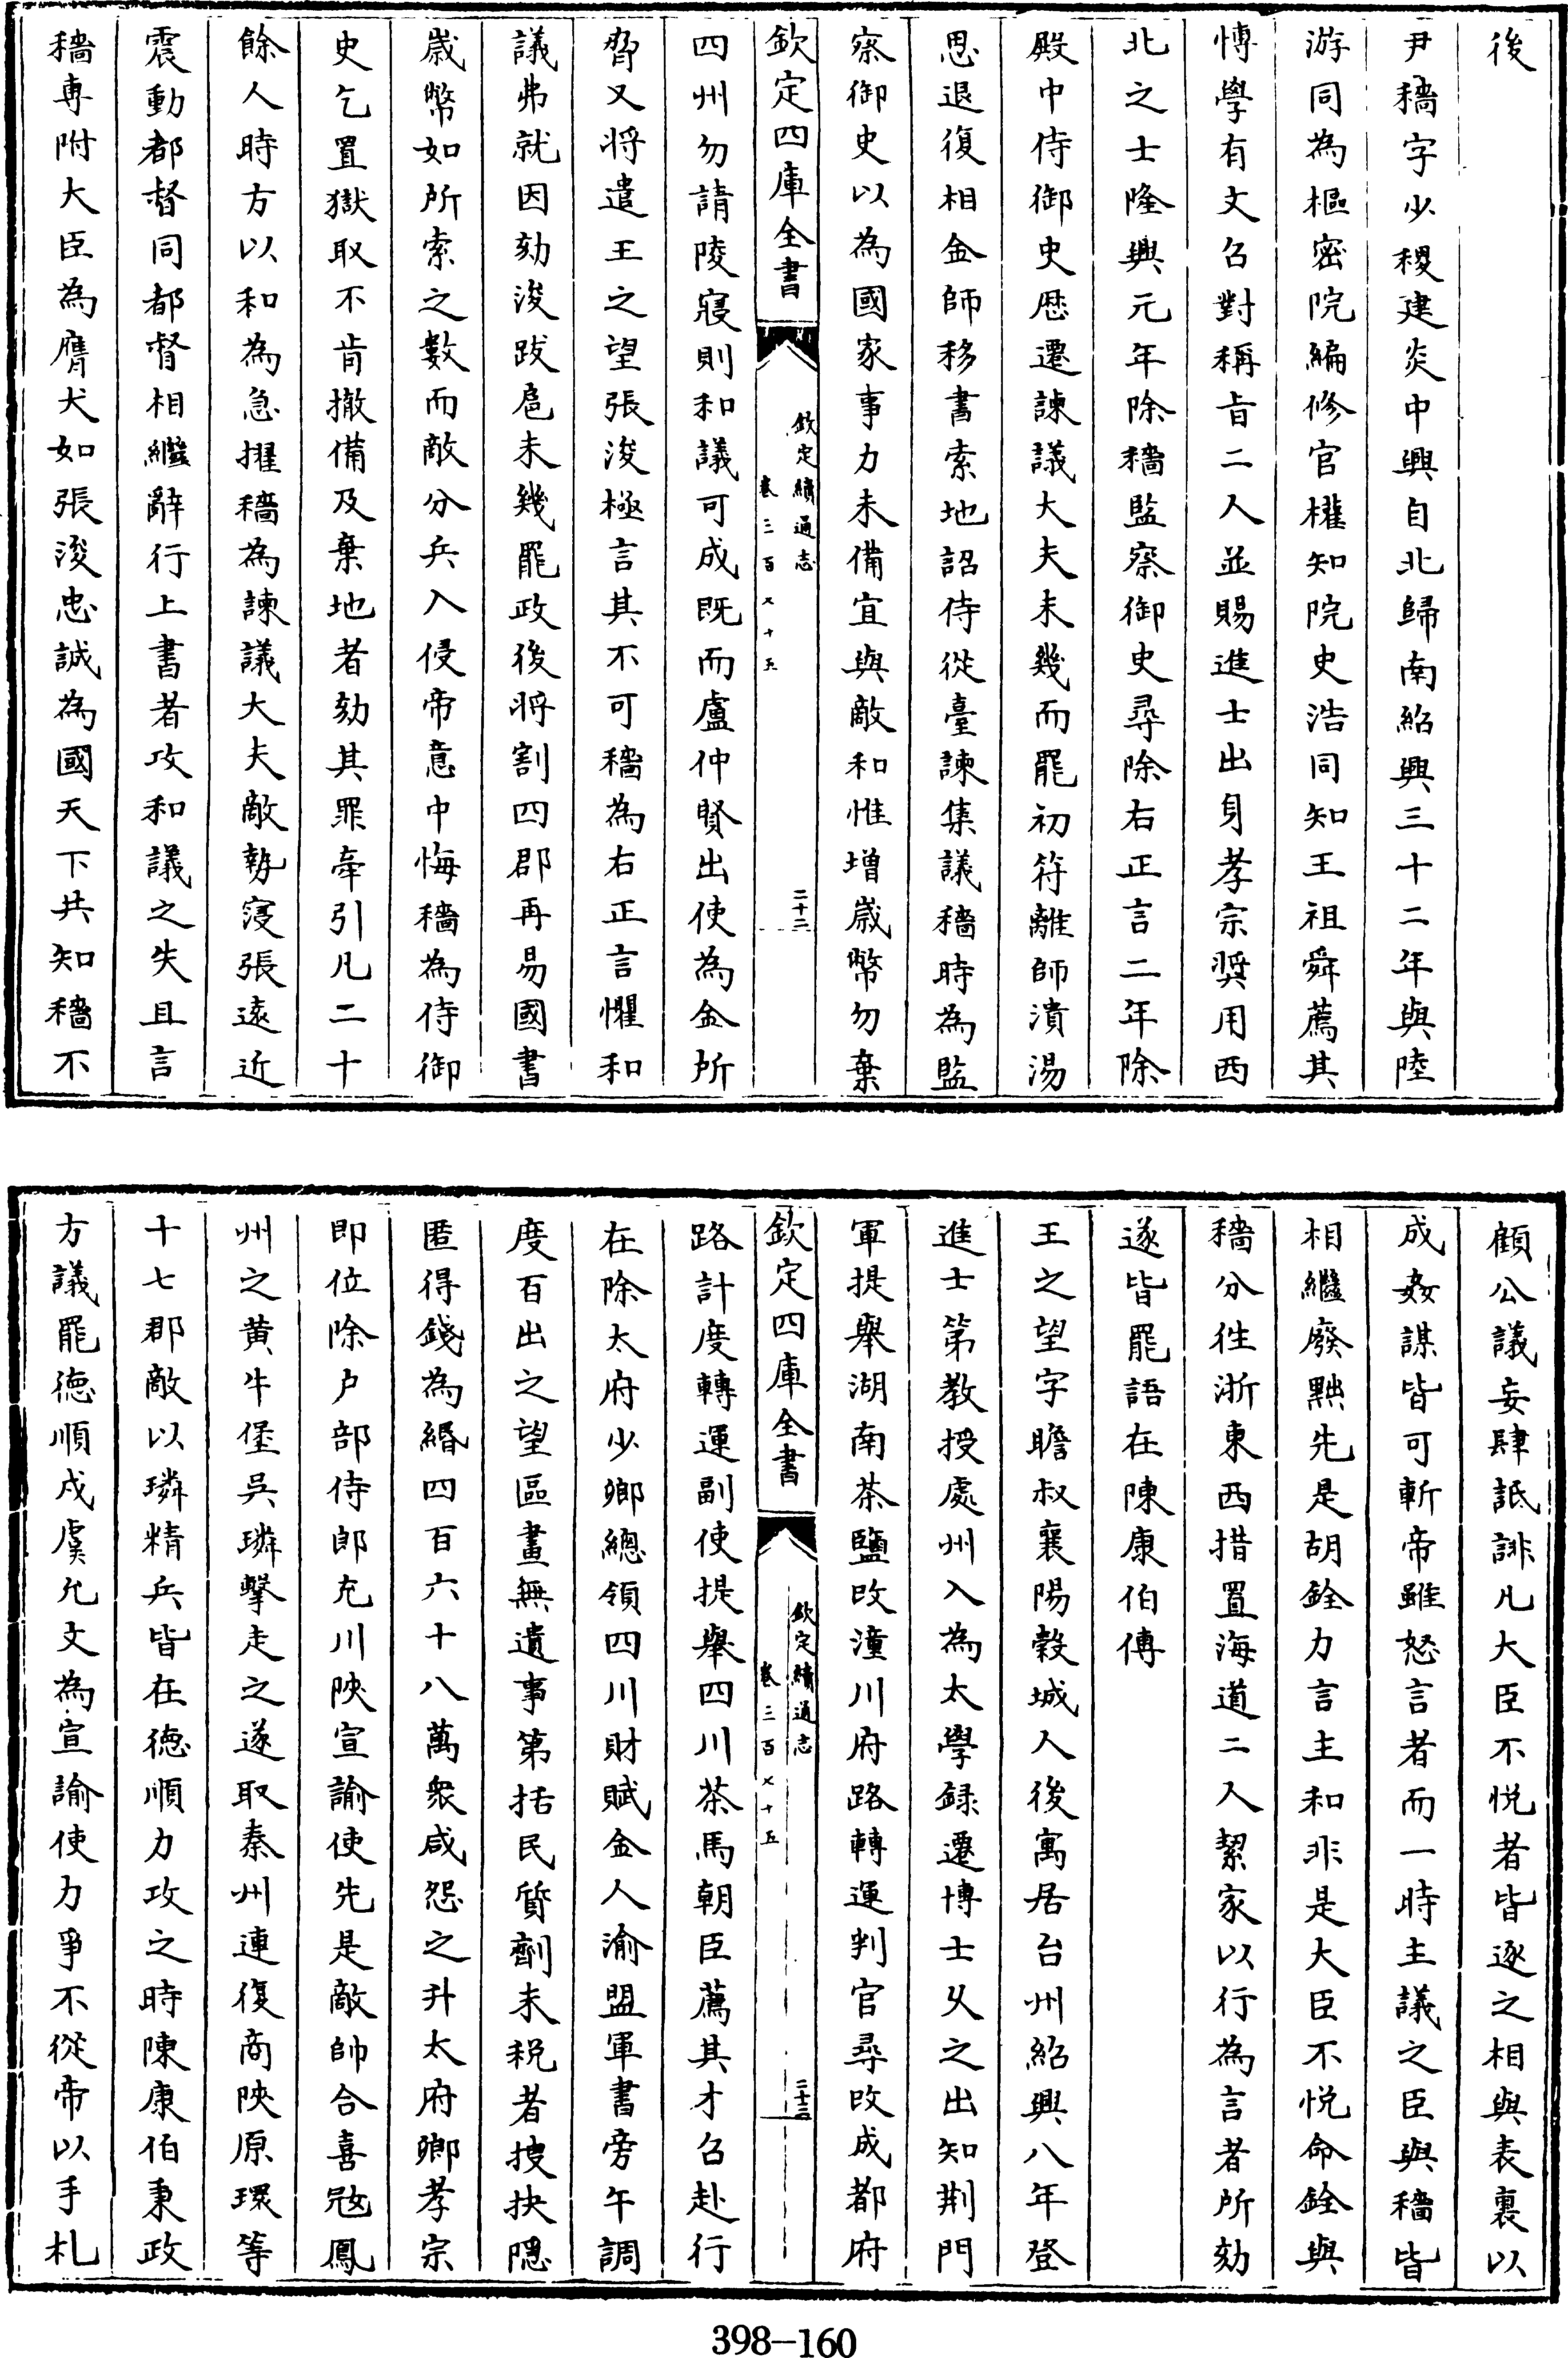 後
尹穡字少稷建炎中興自北歸南紹興三十二年與陸
游同為樞密院編修官權知院史浩同知王祖舜薦其
愽學有文召對稱旨二人並賜進士出身孝宗奬用西
北之士隆興元年除穡監察御史尋除右正言二年除
殿中侍御史歴遷諫議大夫未幾而罷初符離師潰湯
思退復相金師移書索地詔侍從臺諫集議穡時為監
察御史以為國家事力未備宜與敵和惟増嵗幣勿棄
欽定四庫全書
欽定續通志
卷三百七十五
二十二
四州勿請陵寢則和議可成既而盧仲賢出使為金所
脅又将遣王之望張浚極言其不可穡為右正言懼和
議弗就因劾浚跋扈未幾罷政後将割四郡再易國書
嵗幣如所索之數而敵分兵入侵帝意中悔穡為侍御
史乞置獄取不肯撤備及棄地者劾其罪牽引凡二十
餘人時方以和為急擢穡為諫議大夫敵勢寖張逺近
震動都督同都督相繼辭行上書者攻和議之失且言
穡専附大臣為鷹犬如張浚忠誠為國天下共知穡不
顧公議妄肆詆誹凡大臣不悦者皆逐之相與表裏以
成姦謀皆可斬帝雖怒言者而一時主議之臣與穡皆
相繼廢黜先是胡銓力言主和非是大臣不悦命銓與
穡分徃浙東西措置海道二人挈家以行為言者所劾
遂皆罷語在陳康伯傳
王之望字瞻叔襄陽榖城人後寓居台州紹興八年登
進士第教授處州入為太學録遷博士乆之出知荆門
軍提舉湖南茶鹽改潼川府路轉運判官尋改成都府
欽定四庫全書
欽定續通志
卷三百七十五
二十三
路計度轉運副使提舉四川茶馬朝臣薦其才召赴行
在除太府少卿總領四川財賦金人渝盟軍書旁午調
度百出之望區畫無遺事第括民質劑未税者搜抉隠
匿得錢為緡四百六十八萬衆咸怨之升太府卿孝宗
即位除户部侍郎充川陜宣諭使先是敵帥合喜冦鳳
州之黄牛堡吳璘擊走之遂取秦州連復商陜原環等
十七郡敵以璘精兵皆在徳順力攻之時陳康伯秉政
方議罷徳順戍虞允文為宣諭使力爭不從帝以手札
398-160